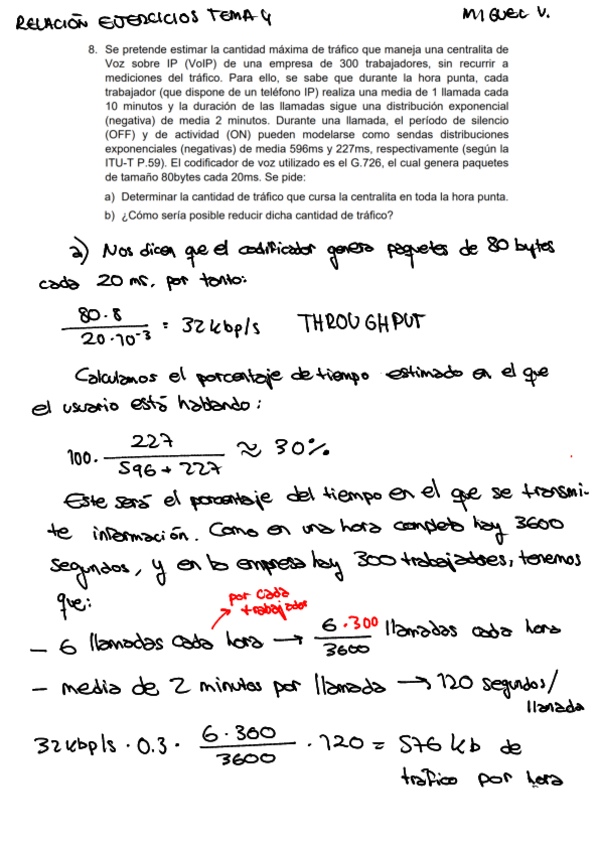 RELACIÓN EJERCICIOS TEMA 4
MIGUEL V.
8. Se pretende estimar la cantidad máxima de tráfico que maneja una centralita de
Voz sobre IP (VoIP) de una empresa de 300 trabajadores, sin recurrir a
mediciones del tráfico. Para ello, se sabe que durante la hora punta, cada
trabajador (que dispone de un teléfono IP) realiza una media de 1 llamada cada
10 minutos y la duración de las llamadas sigue una distribución exponencial
(negativa) de media 2 minutos. Durante una llamada, el período de silencio
(OFF) y de actividad (ON) pueden modelarse como sendas distribuciones
exponenciales (negativas) de media 596ms y 227ms, respectivamente (según la
ITU-T P.59). El codificador de voz utilizado es el G.726, el cual genera paquetes
de tamaño 80bytes cada 20ms. Se pide:
a) Determinar la cantidad de tráfico que cursa la centralita en toda la hora punta.
b) ¿Cómo sería posible reducir dicha cantidad de tráfico?
a) Nos dicen que el codificador genera paquetes de 80 bytes
cada 20 ms, por tanto:
80·8 / 20·10⁻³ = 32 kbp/s THROUGHPUT
Calculamos el porcentaje de tiempo estimado en el que
el usuario está hablando:
100· 227 / 596 + 227 ≈ 30%
Este será el porcentaje del tiempo en el que se transmi-
te información. Como en una hora completa hay 3600
segundos, y en la empresa hay 300 trabajadores, tenemos
que:
por cada
trabajador
- 6 llamadas cada hora → 6·300 / 3600 llamadas cada hora
- media de 2 minutos por llamada → 120 segundos/
llamada
32 kbp/s · 0.3 · 6·300 / 3600 · 120 = 576 kb de
tráfico por hora